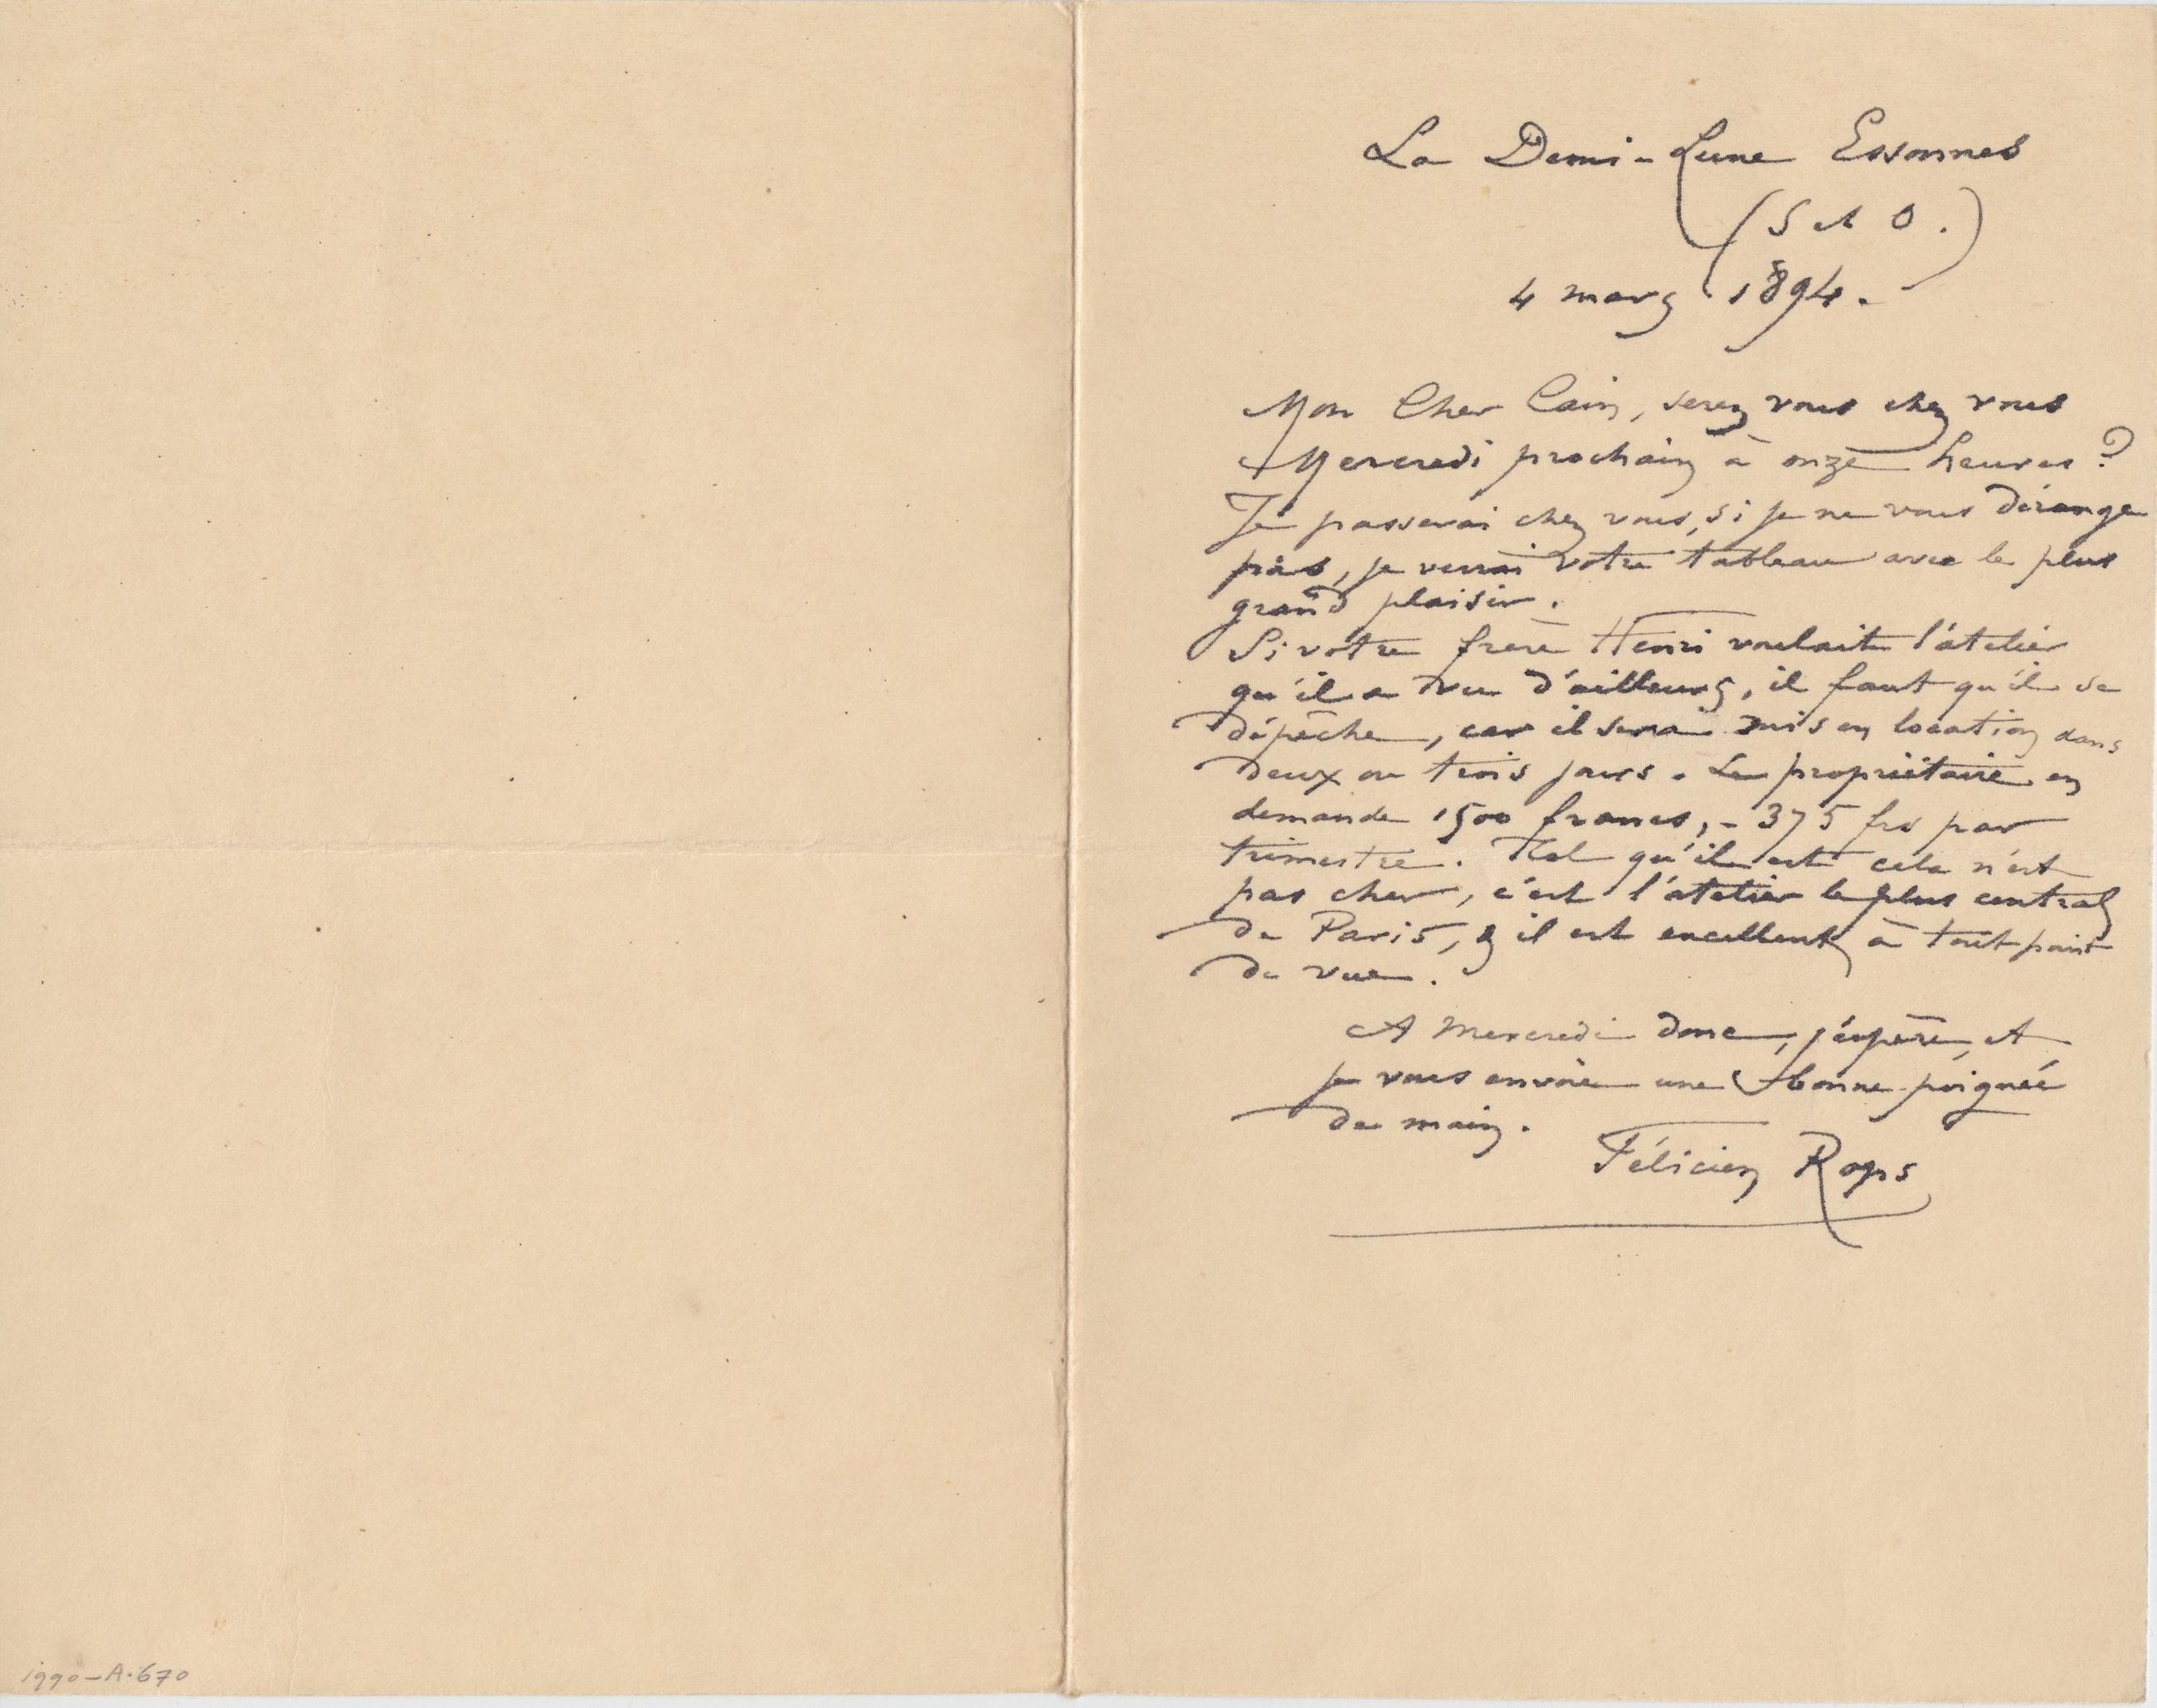 La Demi-Lune Essonnes
(S et O.)
4 mars 1894.
Mon Cher Cain, serez vous chez vous
Mercredi prochain à onze heures ?
Je passerai chez vous, si je ne vous dérange
pas, je verrai votre tableau avec le plus
grand plaisir.
Si votre frère Henri voulait l'atelier
qu'il a vu d'ailleurs, il faut qu'il se
dépêche, car il sera mis en location dans
deux ou trois jours. Le propriétaire en
demande 1500 francs, - 375 frs par
trimestre. Tel qu'il est cela n'est
pas cher, c'est l'atelier le plus central
de Paris, & il est excellent à tout point
de vue.
A Mercredi donc, j'espère, et
je vous envoie une bonne poignée
de main.
Félicien Rops
1990-A.670